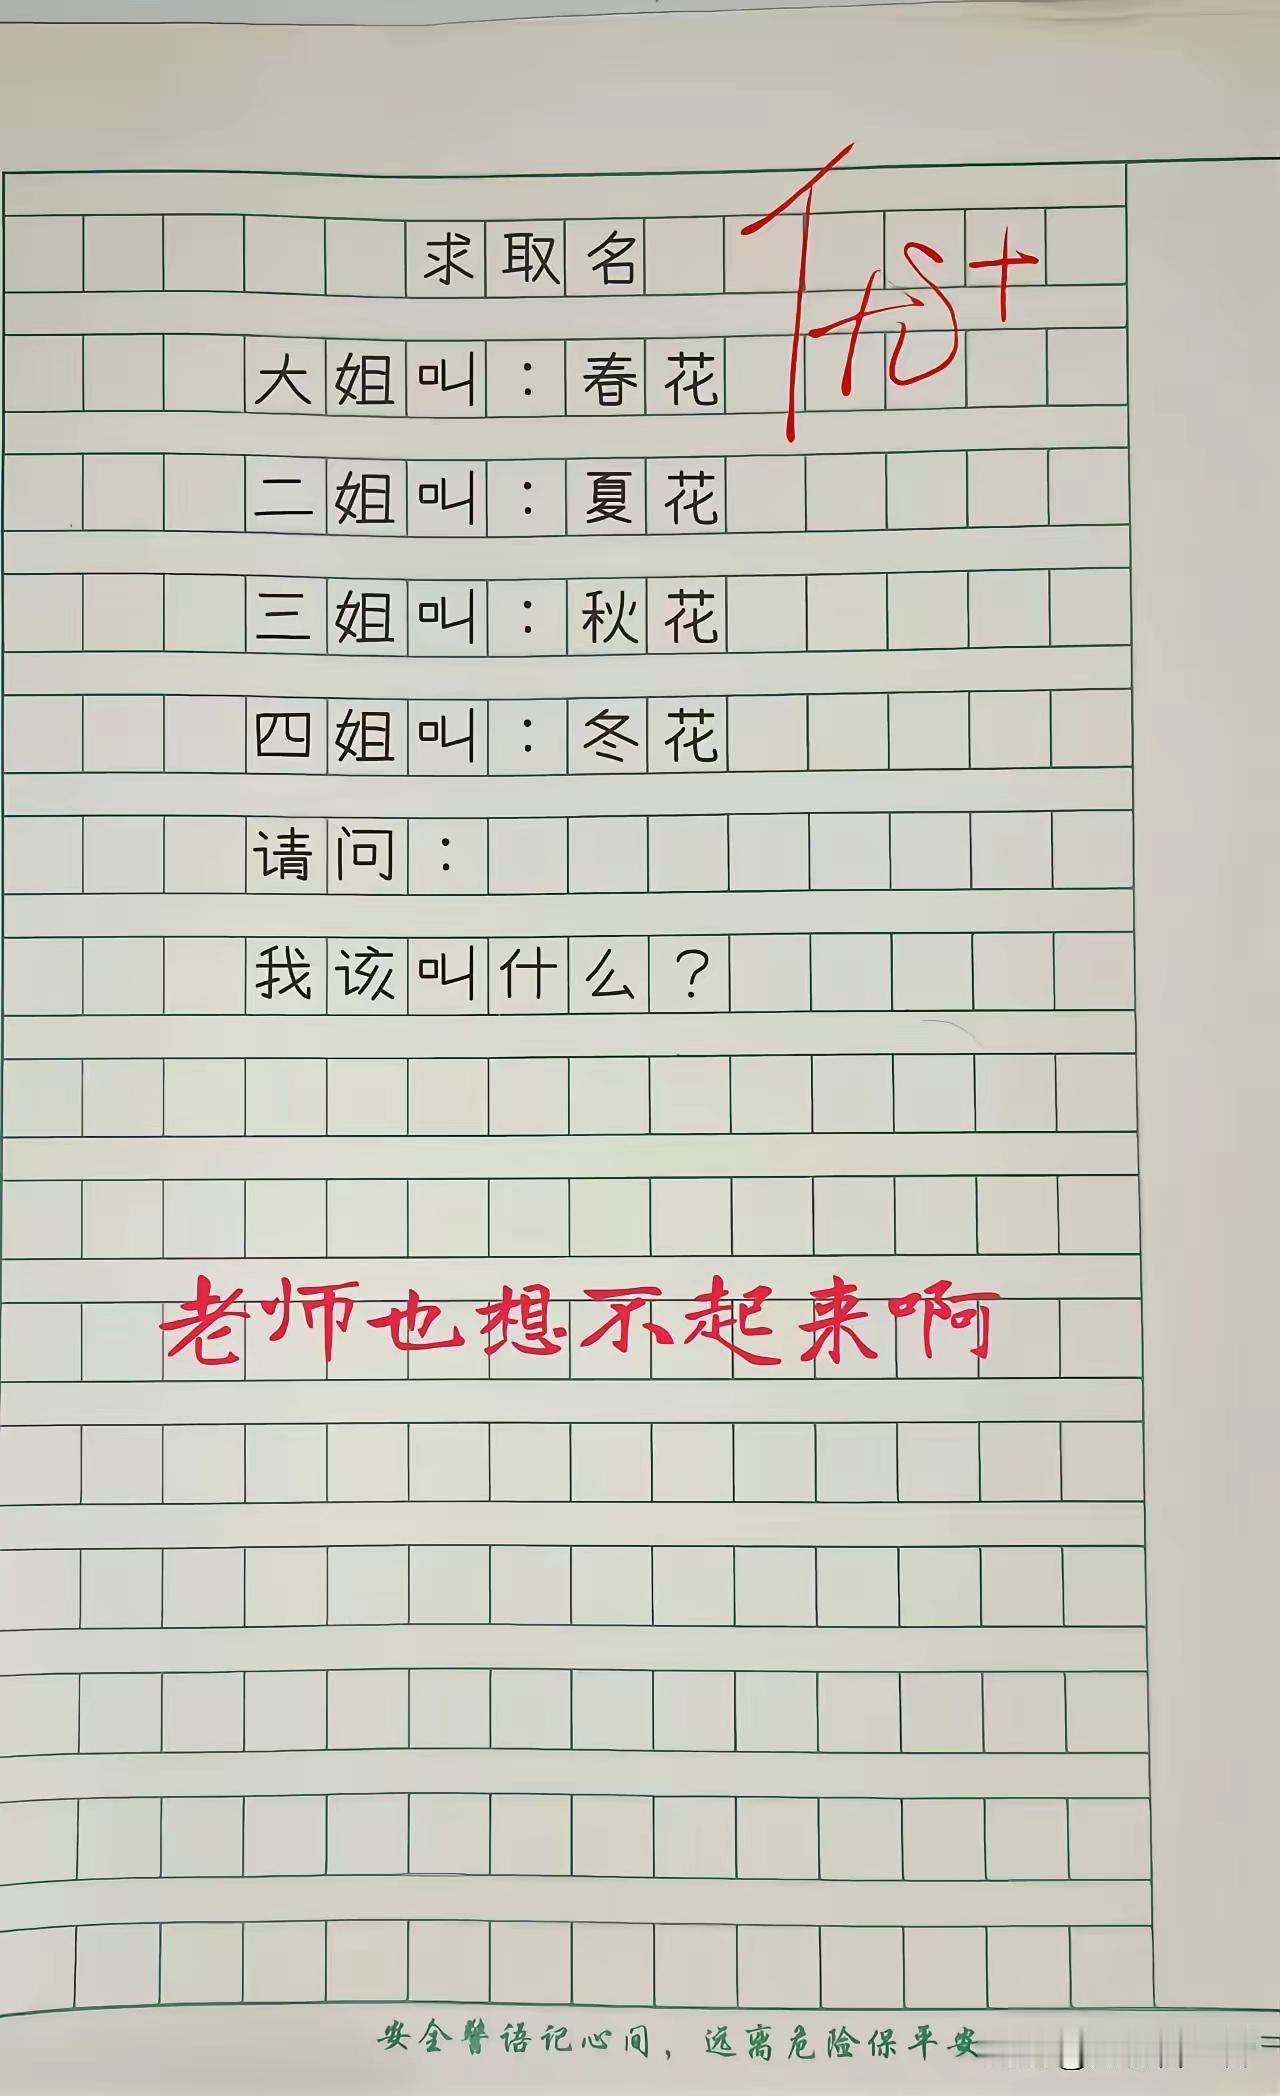 求取名
大姐叫：春花
二姐叫：夏花
三姐叫：秋花
四姐叫：冬花
请问：
我该叫什么？
老师也想不起来啊
安全警语记心间，远离危险保平安